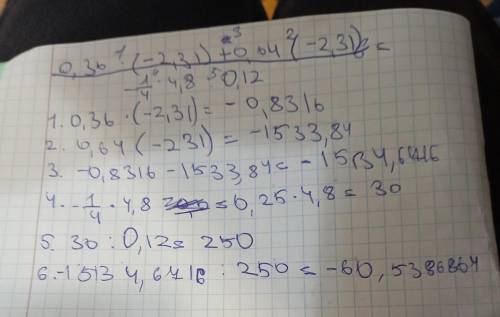 0,36 · (-2,31) + 0,64 (-2,31) =
-1/4 · 4,8 : 0,12
1. 0,36 · (-2,31) = - 0,8316
2. 6,64 (-231) = -1533,84
3. -0,8316 - 1533,84 = - 1534,6716
4. -1/4 · 4,8 = 6,25 · 4,8 = 30
5. 30 : 0,12 = 250
6. -1513 4,6716 : 250 = -60,5386864